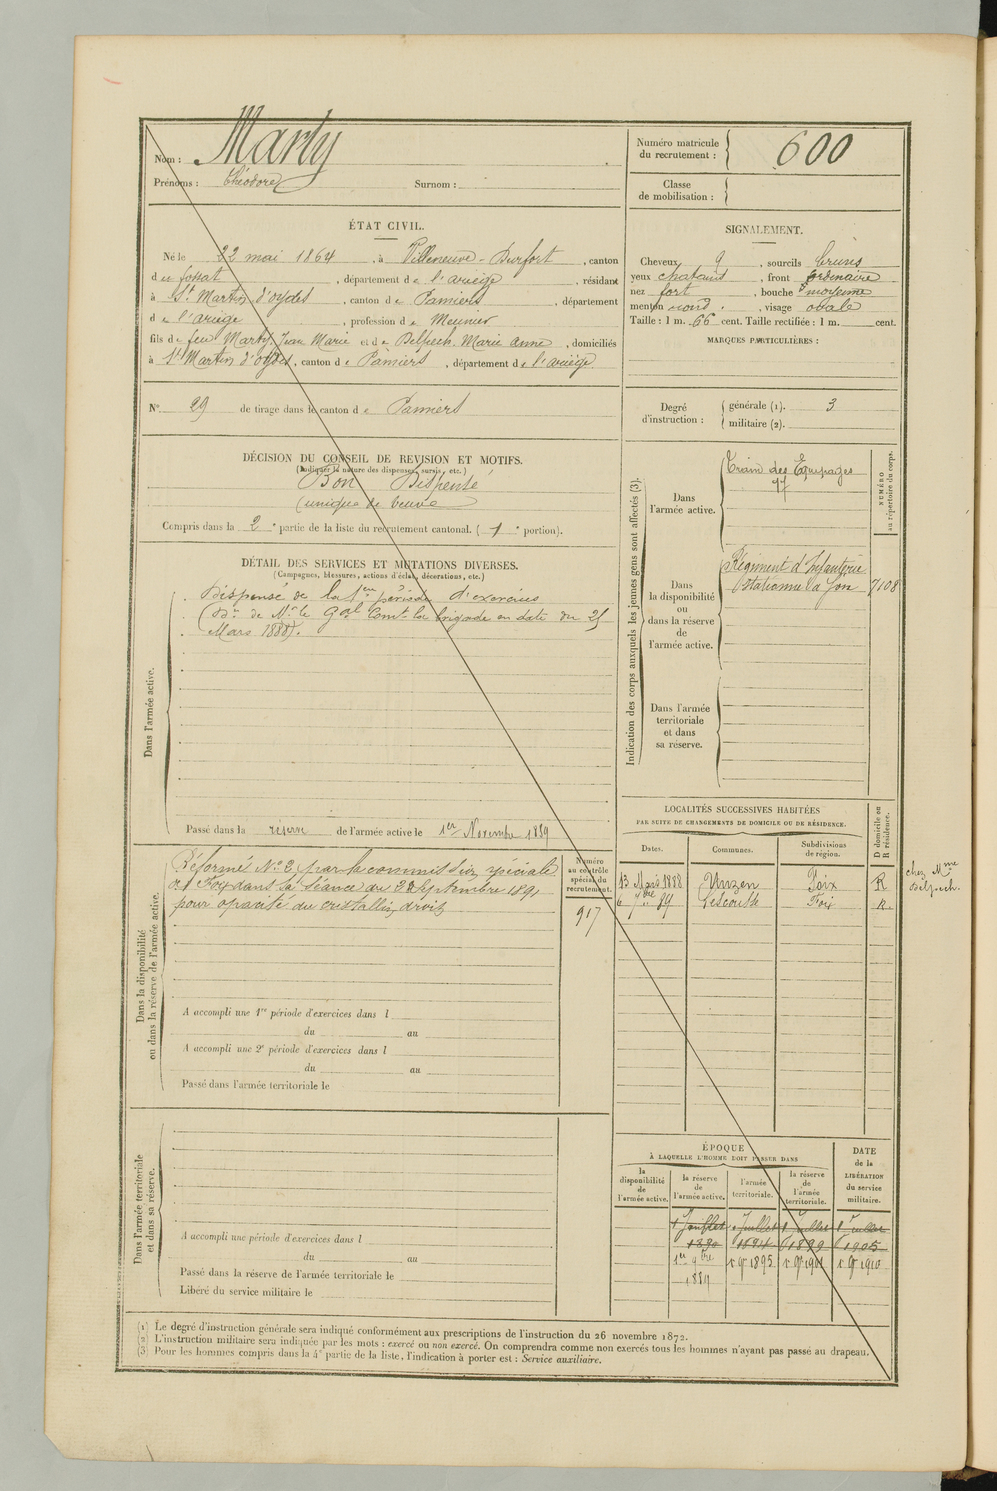 Nom : Marty
Prénoms : Théodore Surnom :
Numéro matricule du recrutement : 600
Classe de mobilisation :
ÉTAT CIVIL.
Né le 22 mai 1864, à Villeneuve-Durfort, canton
de fossat, département de l'ariège, résidant
à St Martin d'oydes, canton de Pamiers, département
de l'ariège, profession de Meunier
fils de feu Marty, Jean Marie et de Delpech, Marie Anne, domiciliés
à St Martin d'oydes, canton de Pamiers, département de l'ariège
N° 29 de tirage dans le canton de Pamiers
SIGNALEMENT.
Cheveux, sourcils bruns
yeux chatains, front ordinaire
nez fort, bouche moyenne
menton rond, visage ovale
Taille : 1 m. 66 cent. Taille rectifiée : 1 m. cent.
MARQUES PARTICULIÈRES :
Degré d'instruction : générale (1). 3
militaire (2).
DÉCISION DU CONSEIL DE REVISION ET MOTIFS.
(Indiquer la nature des dispenses, sursis, etc.)
Bon Dispensé
(unique de veuve
Compris dans la 2e partie de la liste du recrutement cantonal. (1e portion).
DÉTAIL DES SERVICES ET MUTATIONS DIVERSES.
(Campagnes, blessures, actions d'éclat, décorations, etc.)
Dans l'armée active.
Dispensé de la 1ere période d'exercices
(Don de Mr le Gal Comt la brigade en date du 25
Mars 1888).
Passé dans la réserve de l'armée active le 1er Novembre 1889
Indication des corps auxquels les jeunes gens sont affectés (3).
NUMÉRO au répertoire du corps.
Dans l'armée active.
Train des Équipages
17
Dans la disponibilité ou dans la réserve de l'armée active.
Régiment d'Infanterie
stationné à Foix 7108
Dans l'armée territoriale et dans sa réserve.
Dans la disponibilité ou dans la réserve de l'armée active.
Réformé N° 2 par la commission spéciale
de Foix dans sa séance du 22 septembre 1891
pour opacité du cristallin droit
Numéro au contrôle spécial du recrutement.
917
A accompli une 1re période d'exercices dans l
du au
A accompli une 2e période d'exercices dans l
du au
Passé dans l'armée territoriale le
LOCALITÉS SUCCESSIVES HABITÉES
PAR SUITE DE CHANGEMENTS DE DOMICILE OU DE RÉSIDENCE.
Dates. Communes. Subdivisions de région. D domicile ou R résidence.
13 Mars 1888 Unzen Foix R
6 7bre 89 Lescousse Foix R.
chez Mme
Delpech.
Dans l'armée territoriale et dans sa réserve.
A accompli une période d'exercices dans l
du au
Passé dans la réserve de l'armée territoriale le
Libéré du service militaire le
ÉPOQUE
À LAQUELLE L'HOMME DOIT PASSER DANS
la disponibilité de l'armée active.
la réserve de l'armée active.
l'armée territoriale.
la réserve de l'armée territoriale.
DATE de la LIBÉRATION du service militaire.
1 Juillet 1 Juillet 1 Juillet 1 Juillet
1890 1894 1899 1905
1er 9bre 1889 1er 9bre 1895 1er 9bre 1901 1er 9bre 1910
(1) Le degré d'instruction générale sera indiqué conformément aux prescriptions de l'instruction du 26 novembre 1872.
(2) L'instruction militaire sera indiquée par les mots : exercé ou non exercé. On comprendra comme non exercés tous les hommes n'ayant pas passé au drapeau.
(3) Pour les hommes compris dans la 4e partie de la liste, l'indication à porter est : Service auxiliaire.